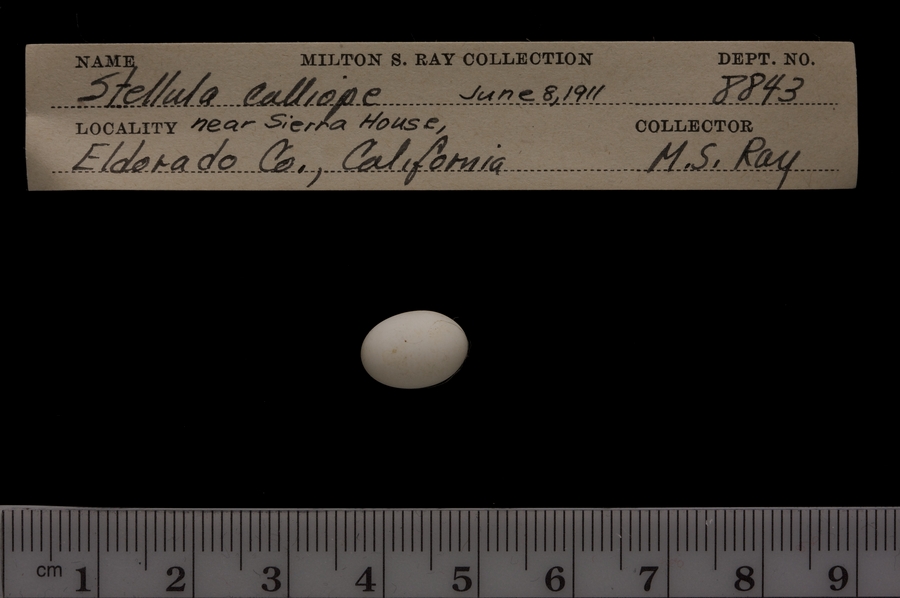 NAME MILTON S. RAY COLLECTION DEPT. NO.
Stellula calliope June 8, 1911 8843
LOCALITY near Sierra House, COLLECTOR
Eldorado Co., California M.S. Ray
cm 1 2 3 4 5 6 7 8 9